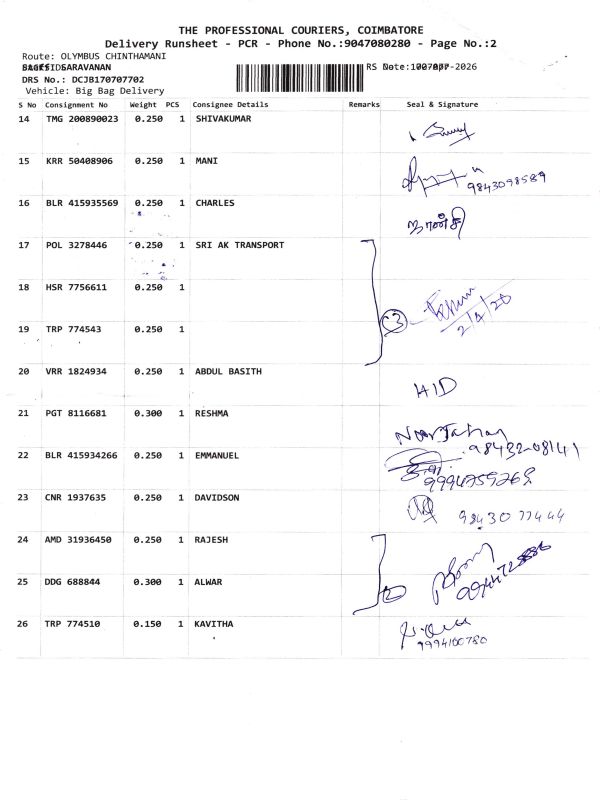 THE PROFESSIONAL COURIERS, COIMBATORE
Delivery Runsheet - PCR - Phone No.:9047080280 - Page No.:2
Route: OLYMBUS CHINTHAMANI
SARAVANAN
DRS No.: DCJB170707702
Vehicle: Big Bag Delivery
S No Consignment No Weight PCS Consignee Details Remarks Seal & Signature
14 TMG 200890023 0.250 1 SHIVAKUMAR
15 KRR 50408906 0.250 1 MANI
9843098589
16 BLR 415935569 0.250 1 CHARLES
நான்சி
17 POL 3278446 0.250 1 SRI AK TRANSPORT
18 HSR 7756611 0.250 1
3
2/4/20
19 TRP 774543 0.250 1
20 VRR 1824934 0.250 1 ABDUL BASITH
HID
21 PGT 8116681 0.300 1 RESHMA
NoorJahan
98432-08141
22 BLR 415934266 0.250 1 EMMANUEL
9994759269
23 CNR 1937635 0.250 1 DAVIDSON
9843077444
24 AMD 31936450 0.250 1 RAJESH
25 DDG 688844 0.300 1 ALWAR
2
26 TRP 774510 0.150 1 KAVITHA
9994100780